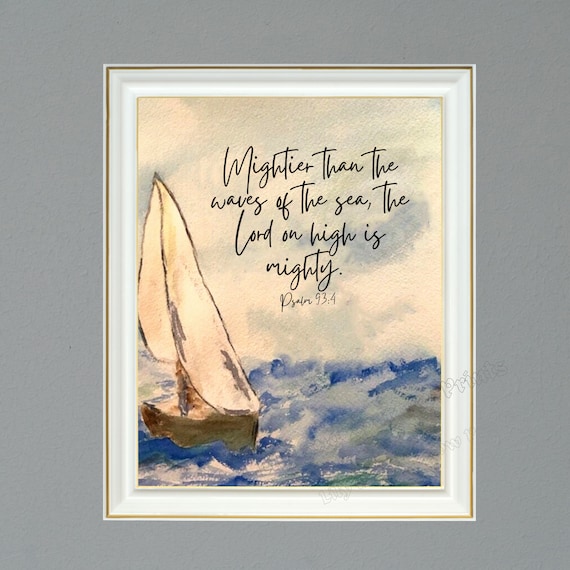 Mightier than the
waves of the sea, the
Lord on high is
mighty.
Psalm 93:4
Prints